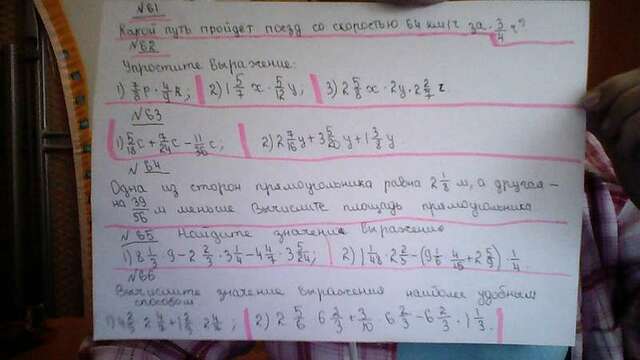 №61
Какой путь пройдёт поезд со скоростью 64 км/ч за 3/4 ч?
№62
Упростите выражение:
1) 7/8 p · 4/9 k; 2) 1 5/7 x · 5/12 y; 3) 2 5/8 x · 2y · 2 2/7
№63
1) 5/18 c + 7/24 c - 11/36 c; 2) 2 7/16 y + 3 5/20 y + 1 3/8 y
№64
Одна из сторон прямоугольника равна 2 1/8 м, а другая —
на 39/56 м меньше Вычислите площадь прямоугольника
№65 Найдите значение выражения
1) 8 1/3 · 9 - 2 2/3 · 3 1/4 - 4 4/7 · 3 5/24; 2) 1 1/48 · 2 2/3 - (9 1/6 · 4/45 + 2 5/9) · 1/4.
№66
Вычислите значение выражения наиболее удобным
способом
2) 2 5/6 · 6 2/3 + 3/10 · 6 2/3 - 6 2/3 · 1 1/3.